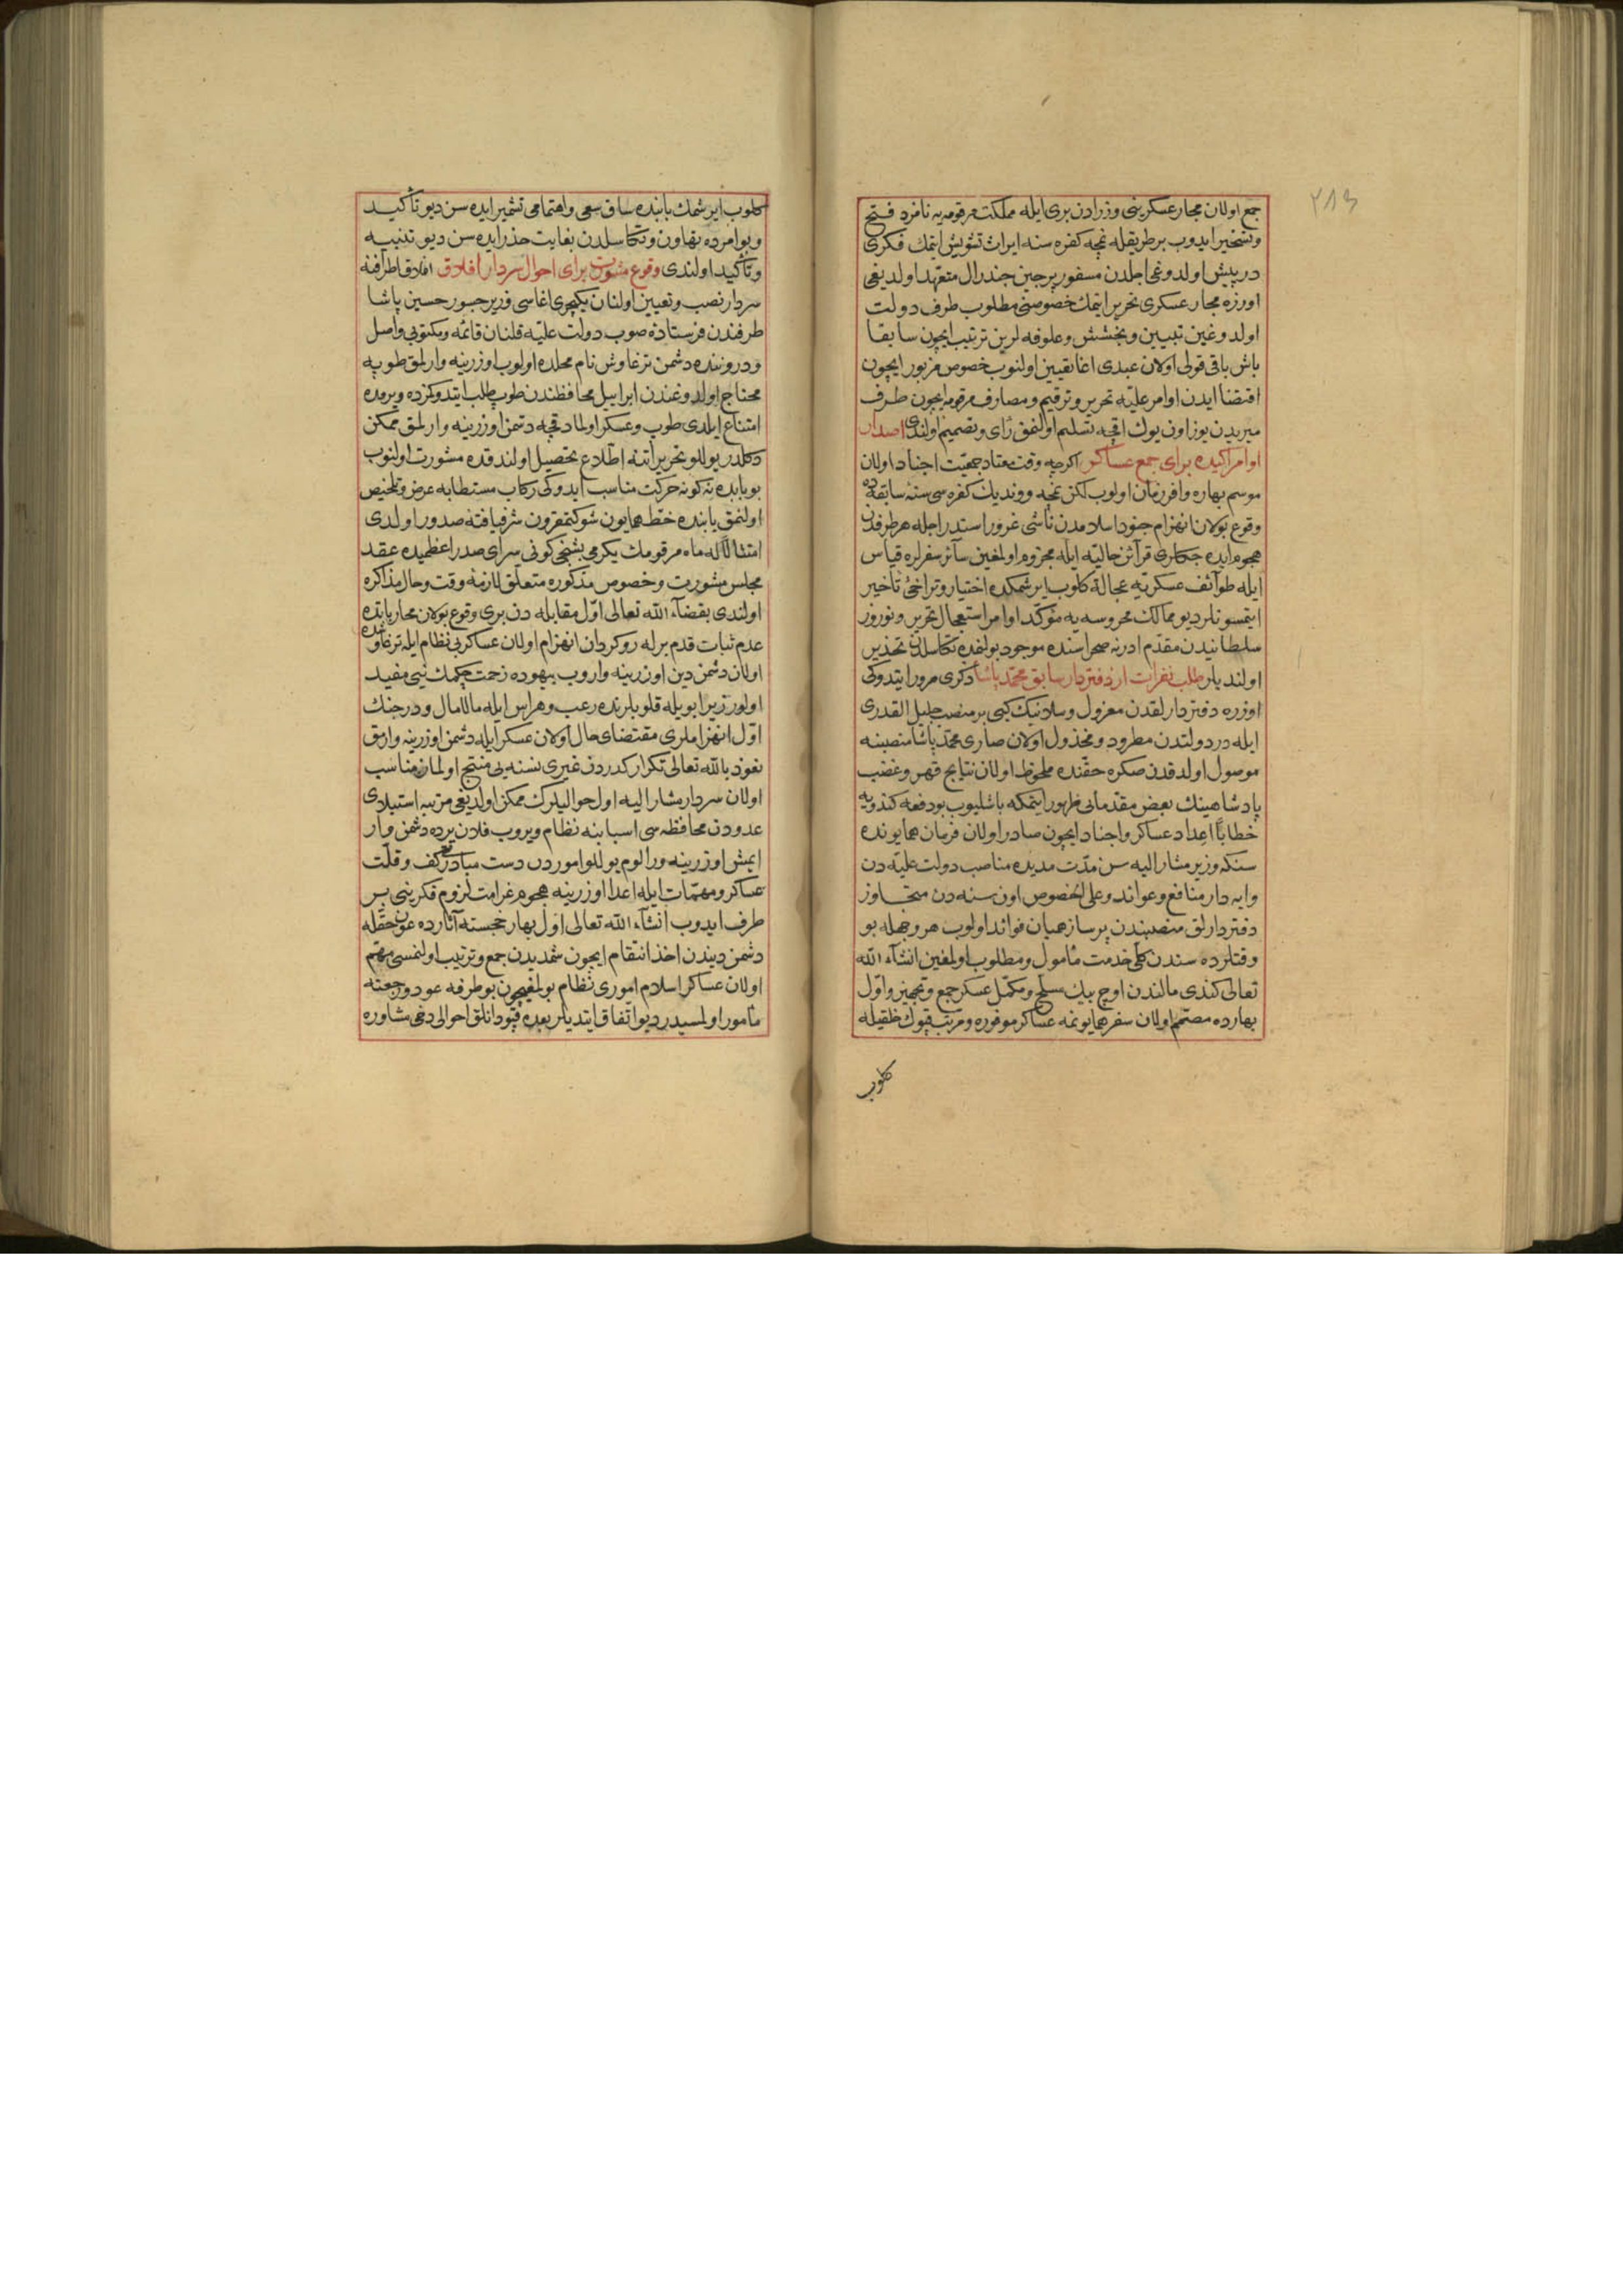 ٢٨٣
جمع اولان مجار عسكرینی وزرادن بری ایله مملكت مرقومه‌یه نامزد فتح
وتسخیر ایدوب بر طریقله نمچه كفره سنه ایراث تشویش ایتمك فكری
درپیش اولدوغی اجلدن مسفور پرچین جندرال متعهد اولدیغی
اوزره مجار عسكری تحریر ایتمك خصوصنی مطلوب طرف دولت
اولدوغین تبیین وبخشش وعلوفه لرین ترتیب ایچون سابقا
باش باقی قولی اولان عبدی اغا تعیین اولنوب خصوص مزبور ایچون
اقتضا ایدن اوامر علیّه تحریر وترقیم ومصارف مرقومه ایچون طرف
میریدن یوز اون یوك اقچه تسلیم اولنمق رأی وتصمیم اولندی اصدار
اوامر اكیده برای جمع عساكر اكرچه وقت معتاد جمعیّت اجناد اولان
موسم بهاره وافر زمان اولوب لكن نمچه وونديك كفره سی سنهٔ سابقه ده
وقوع بولان انهزام جنود اسلامدن ناشی غرور اسندراجله هر طرفدن
هجوم ایده جكلری قرآئن حالیّه ایله مجزوم اولمغین سآئر سفرلره قیاس
ایله طوآئف عسكریّه عجالةً كلوب ایرشمكده اختیار وتراخئ تأخیر
ایتمسونلر دیو ممالك محروسه یه مؤكّد اوامر استعجال تحریر ونوروز
سلطانیدن مقدّم ادرنه صحراسنده موجود بولنمغده تكاسلدن تحذیر
اولندیلر طلب نفرات از دفتردار سابق محمّد پاشا ذكری مرور ایتدوكی
اوزره دفتردارلقدن معزول وسلانیك كبی بر منصب جلیل القدری
ایله در دولتدن مطرود ومخذول اولان صاری محمّد پاشا منصبنه
موصول اولدقدن صكره حقّنده ملحوظ اولان نتایج قهر وغضب
پادشاهینك بعض مقدماتی ظهور ایتمكه باشلیوب بو دفعه كندویه
خطاباً اعداد عساكر واجناد ایچون صادر اولان فرمان همایونده
سنكه وزیر مشار الیه سن مدّت مدیده مناصب دولت علیّه دن
وایه دار منافع وعوائد وعلی الخصوص اون سنه دن متجاوز
دفتردارلق منصبندن پرساز همیان فوائد اولوب هر وجهله بو
وقتلرده سندن كلّی خدمت مأمول ومطلوب اولمغین انشآء الله
تعالی كندی مالندن اوچ بیك مسلّح ومكمّل عسكر جمع وتجهیز واوّل
بهارده مصمّم اولان سفر همایونمه عساكر موفوره ومرتّب قپوك خلقیله
كلوب
كلوب ایرشمك بابنده ساق سعی واهتمامی تشمیر ایده سن دیو تأكید
وبو امرده تهاون وتكاسلدن بغایت حذر ایده سن دیو تنبیه
وتأكید اولندی وقوع مشورت برای احوال سردار افلاق افلاق اطرافنه
سردار نصب وتعیین اولنان یكیچری اغاسی وزیر جسور حسین پاشا
طرفندن فرستادهٔ صوب دولت علیّه قلنان قائمه ومكتوبی واصل
ودروننده دشمن ترغاوش نام محلده اولوب اوزرینه وارلمق طوپه
محتاج اولدوغندن ابراییل محافظندن طوپ طلب ایتدوكرده ویرمده
امتناع ایلدی طوپ وعسكر اولمادقچه دشمن اوزرینه وارلمق ممكن
دكلدر یوللو تحریراتنه اطّلاع تحصیل اولندقده مشورت اولنوب
بو بابده نه كونه حركت مناسب ایدوكی ركاب مستطابه عرض وتلخیص
اولنمق بابنده خطّ همایون شوكتمقرون شرفیافتهٔ صدور اولدی
امتثالاً له ماه مرقومك یكرمی بشنجی كونی سرای صدر اعظمیده عقد
مجلس مشورت وخصوص مذكوره متعلّق لازمهٔ وقت وحال مذاكره
اولندی بقضآء الله تعالی اوّل مقابله دن بری وقوع بولان محارباتده
عدم ثبات قدم برله روكردان انهزام اولان عساكر بی نظام ایله ترغاوشده
اولان دشمن دین اوزرینه واروب بیهوده زحمت چكمك نیی مفید
اولور زیرا بویله قلوبلرنده رعب وهراس ایله مالامال ودر جنك
اوّل انهزاملری مقتضای حال اولان عسكر ایله دشمن اوزرینه وارمق
نعوذ بالله تعالی تكرار كدردن غیری نسنه یی منتج اولماز مناسب
اولان سردار مشار الیه اول حوالیلرك ممكن اولدیغی مرتبه استیلای
عدودن محافظه سی اسبابنه نظام ویروب فلان یرده دشمن وار
ایمش اوزرینه ورالوم یوللو اموردن دست مبادرتی كف وقلّت
عساكر ومهمّات ایله اعدا اوزرینه هجوم غرامت لزوم فكرینی بر
طرف ایدوب انشآء الله تعالی اوّل بهار خجسته آثارده عون حقّله
دشمن دیندن اخذ انتقام ایچون شمدیدن جمع وترتیب اولنمسی مهمّ
اولان عساكر اسلام اموری نظام بولمغیچون بو طرفه عود ورجعته
مأمور اولمسیدر دیو اتّفاق ایتدیلر بعده قپودانلق احوالی دخی مشاوره